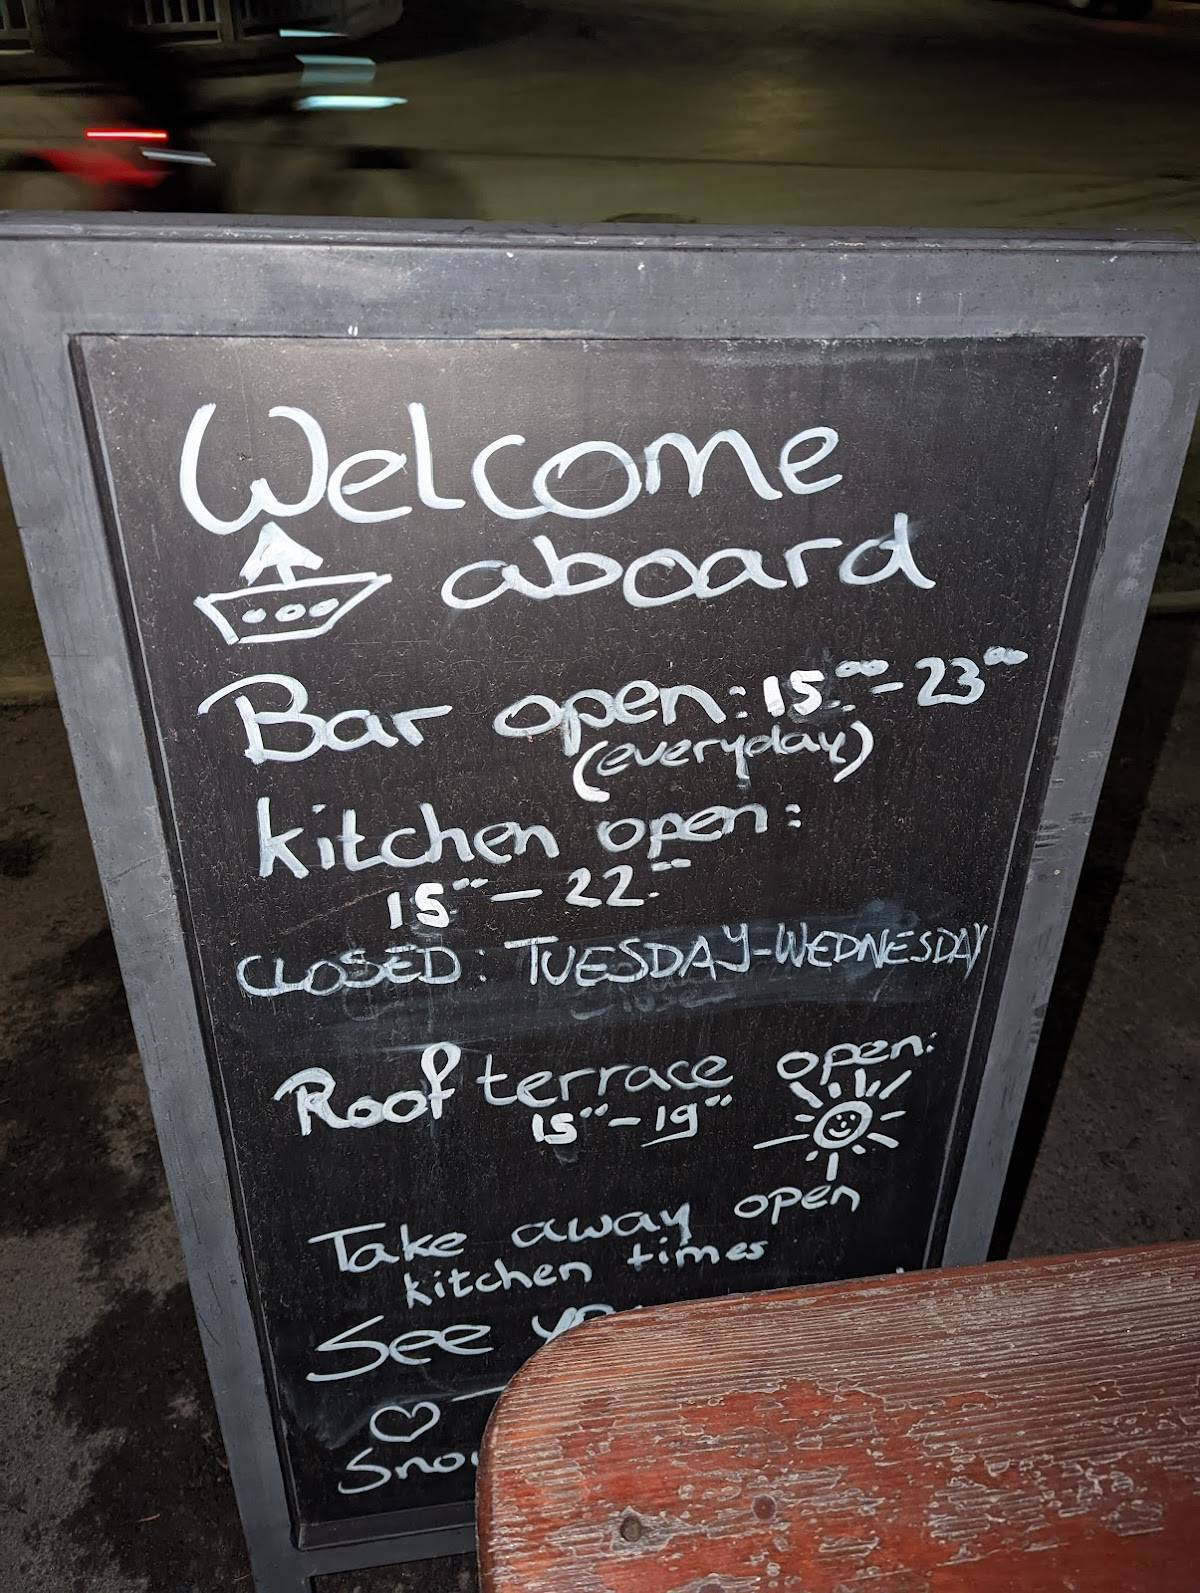 Welcome
aboard
Bar open: 15⁰⁰ - 23⁰⁰
(everyday)
kitchen open:
15⁰⁰ - 22⁰⁰
CLOSED: TUESDAY-WEDNESDAY
Roof terrace open:
15⁰⁰ - 19⁰⁰
Take away open
kitchen times
See